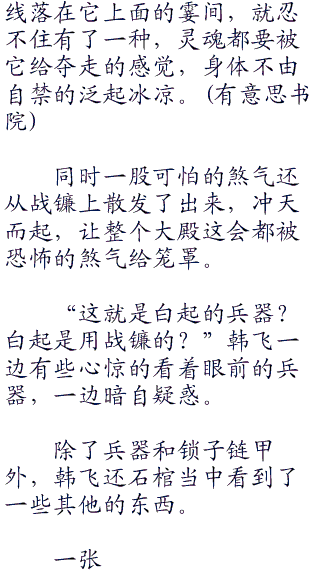 线落在它上面的霎间，就忍
不住有了一种，灵魂都要被
它给夺走的感觉，身体不由
自禁的泛起冰凉。(有意思书
院)
同时一股可怕的煞气还
从战镰上散发了出来，冲天
而起，让整个大殿这会都被
恐怖的煞气给笼罩。
“这就是白起的兵器？
白起是用战镰的？”韩飞一
边有些心惊的看着眼前的兵
器，一边暗自疑惑。
除了兵器和锁子链甲
外，韩飞还石棺当中看到了
一些其他的东西。
一张